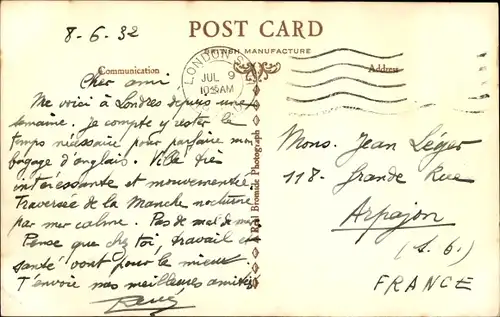 8-6-32
POST CARD
BRITISH MANUFACTURE
Communication
Address
LONDON
JUL 9
10 AM
Cher ami
Me voici à Londres depuis une
semaine. je compte y rester le
temps nécéssaire pour parfaire mon
bagage d'anglais. Ville très
intéressante et mouvementée
Traversée de la Manche nocturne
par mer calme. Pas de mal de mer
Pense que chez toi, travail et
santé vont pour le mieux.
T'envoie mes meilleures amitiés
A Real Bromide Photograph
Mons. Jean Léger
118- Grande Rue
Arpajon
(S. O.)
FRANCE